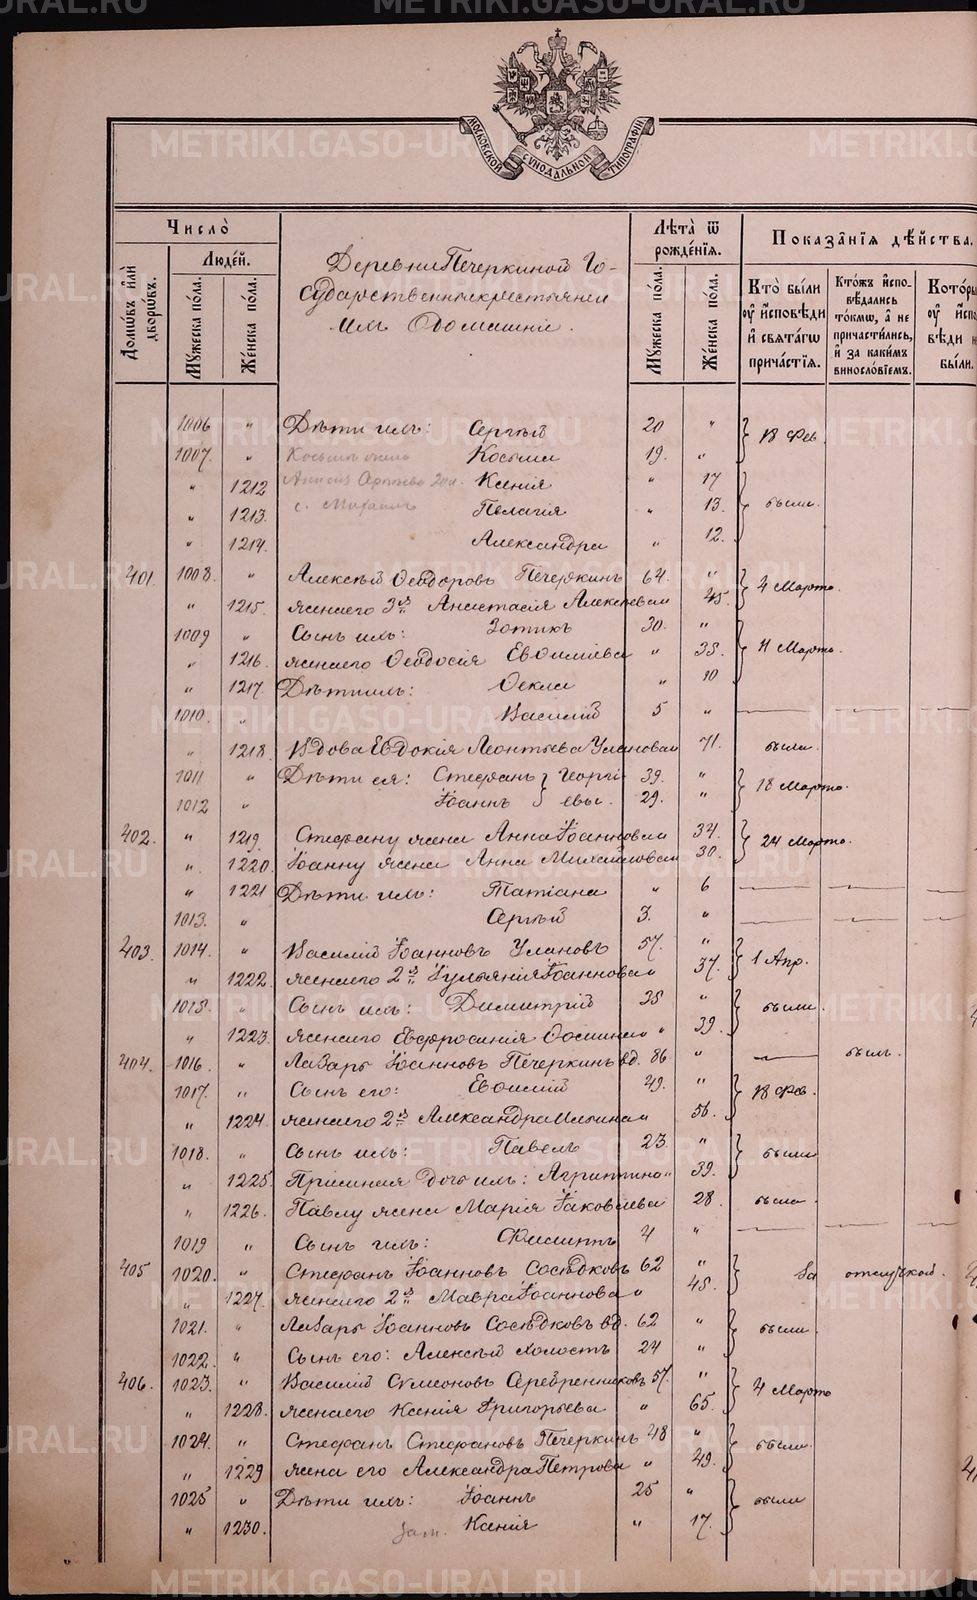 METRIKI.GASO-URAL.RU
МОСКОВСКОЙ СѴНОДАЛЬНОЙ ТИПОГРАФІИ
Число̀
Домѡвъ и҆лѝ дворѡвъ.
Люде́й.
Мꙋжеска по́ла.
Же́нска по́ла.
Деревни Печеркиной Го-
сударственные крестьяне и
ихъ домашніе.
Лѣта̀ ѿ рожде́нїѧ.
Мꙋжеска по́ла.
Же́нска по́ла.
Показа̑нїѧ дѣ́йства.
Кто̀ бы́ли ᲂу҆ и҆сповѣди и҆ свѧта́гѡ прича́стїѧ.
Кто́жъ и҆спо-вѣдались то́кмѡ, а҆ не причасти́лись, и҆ за каки́мъ винослόвїемъ.
Кото́ры ᲂу҆ и҆спо вѣди н бы́ли.
1006 " Дѣти ихъ: Сергѣй 20 " 18 Фев.
1007. " Косьма 19. "
" 1212 Ксенія " 17 были.
" 1213. Пелагія " 13.
" 1214. Александра " 12.
401. 1008. " Алексѣй Ѳеодоровъ Печеркинъ 64. " 4 Марта.
" 1215. жена его 3ья Анастасія Алексѣева 45.
1009 " Сынъ ихъ: Зотикъ 30. " 11 Марта.
" 1216. жена его Ѳеодосія Евѳиміева " 35.
" 1217. Дѣти ихъ: Ѳекла " 10
1010. " Василій 5 "
" 1218. Вдова Евдокія Леонтьева Уланова 71. была.
1011 " Дѣти ея: Стефанъ } Георгі- 39. " 18 Марта.
1012 " Іоаннъ } евы. 29. "
402. " 1219. Стефану жена Анна Іоаннова 34. 24 Марта.
" 1220. Іоанну жена Анна Михайлова 30.
" 1221 Дѣти ихъ: Татіана " 6
1013. " Сергѣй 3. "
403. 1014. " Василій Іоанновъ Улановъ 57. " 1 Апр.
" 1222. жена его 2я Іуліанія Іоаннова 37.
1015. " Сынъ ихъ: Димитрій 35 " были.
" 1223. жена его Евфросинія Ѳомина " 39.
404. 1016. " Лазарь Іоанновъ Печеркинъ вд. 86. " былъ.
1017. " Сынъ его: Евѳимій 49. " 18 Фев.
" 1224. жена его 2я Александра Ильина " 56.
1018. " Сынъ ихъ: Павелъ 23. " были
" 1225. Пріемная дочь ихъ: Агриппина " 39.
" 1226. Павлу жена Марія Іаковлева 28. была.
1019 " Сынъ ихъ: Филиппъ 4 "
405 1020. " Стефанъ Іоанновъ Сосѣдковъ 62 " За отлучкой.
" 1227. жена его 2я Мавра Іоаннова " 45.
1021. " Лазарь Іоанновъ Сосѣдковъ вд. 62 " были
1022. " Сынъ его: Алексѣй холостъ 24 "
406. 1023. " Василій Сумеоновъ Серебренниковъ 57. " 4 Марта
" 1228. жена его Ксенія Григорьева " 65.
1024. " Стефанъ Стефановъ Печеркинъ 48 " были.
" 1229 жена его Александра Петрова " 49.
1025 " Дѣти ихъ: Іоаннъ 25 " были
" 1230. зам. Ксенія " 17.